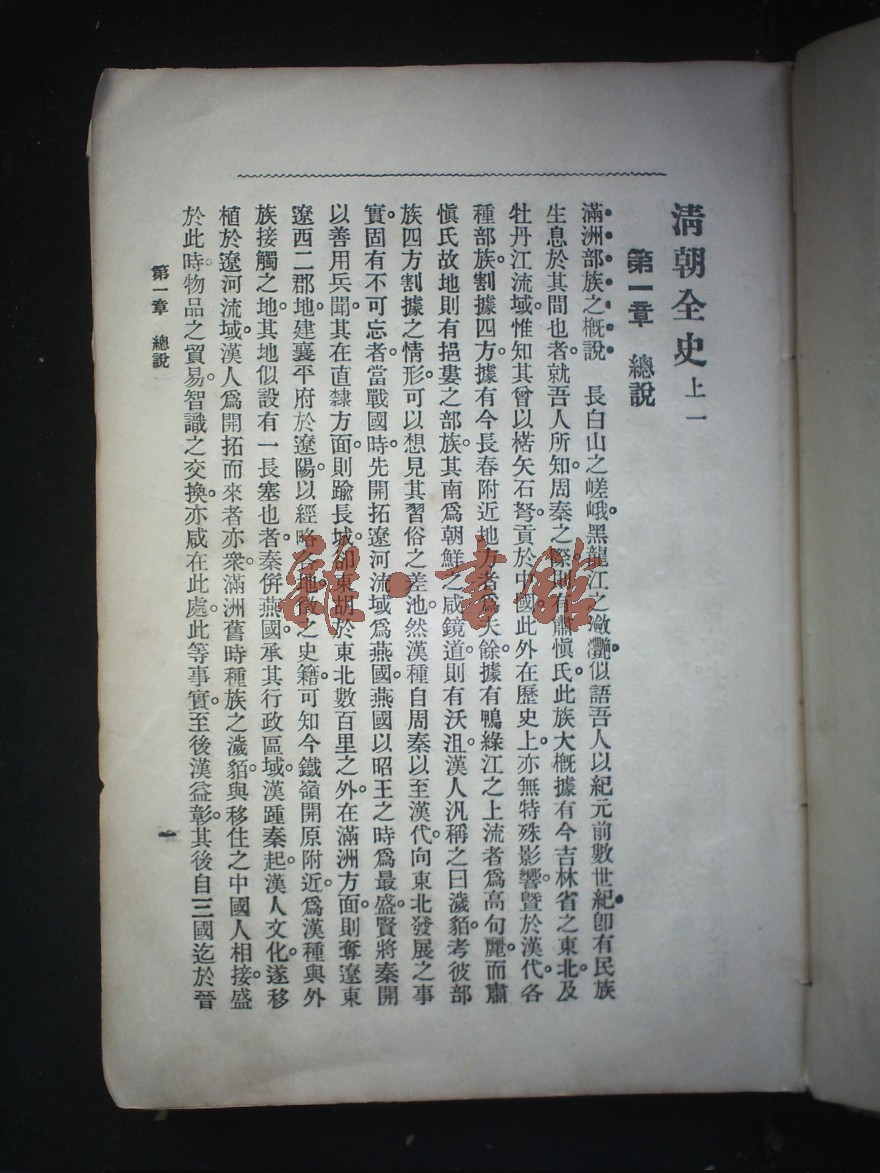 清朝全史 上一
第一章 總說
滿洲部族之概說 長白山之嵯峨。黑龍江之瀲灩。似語吾人以紀元前數世紀。卽有民族
生息於其間也者。就吾人所知。周秦之際。則有肅愼氏。此族大概據有今吉林省之東北。及
牡丹江流域。惟知其曾以楛矢石弩。貢於中國。此外在歷史上。亦無特殊影響。曁於漢代。各
種部族。割據四方。據有今長春附近地方者。爲夫餘。據有鴨綠江之上流者。爲高句麗。而肅
愼氏故地。則有挹婁之部族。其南爲朝鮮之咸鏡道。則有沃沮。漢人汎稱之曰濊貊。考彼部
族四方割據之情形。可以想見其習俗之差池。然漢種自周秦以至漢代。向東北發展之事
實。固有不可忘者。當戰國時。先開拓遼河流域。爲燕國。燕國以昭王之時爲最盛。賢將秦開
以善用兵聞。其在直隸方面。則踰長城。卻東胡於東北數百里之外。在滿洲方面。則奪遼東
遼西二郡地。建襄平府於遼陽。以經略各地。徵之史籍。可知今鐵嶺開原附近。爲漢種與外
族接觸之地。其地似設有一長塞也者。秦併燕國。承其行政區域。漢踵秦起。漢人文化。遂移
植於遼河流域。漢人爲開拓而來者亦衆。滿洲舊時種族之濊貊。與移住之中國人相接。盛
於此時。物品之貿易。智識之交換。亦咸在此處。此等事實。至後漢益彰。其後自三國迄於晉
第一章 總說
一
雜·書館